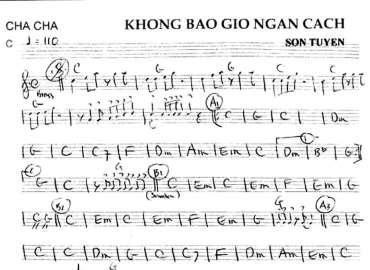 CHA CHA KHONG BAO GIO NGAN CACH
C ♩ = 110 SON TUYEN
C G G C G
Brass
G C A1 C | G | C | | Dm
| G | C | C7 | F | Dm | Am | Em | C | Dm | Bb | G
G | C | G B1 C | Em | C | Em | F | Em | G
| C G B2 C | Em | C | Em | F | Em | G | G A3 C | G
| C | C | Dm | G | C | C7 | F | Dm | Am | Em | C